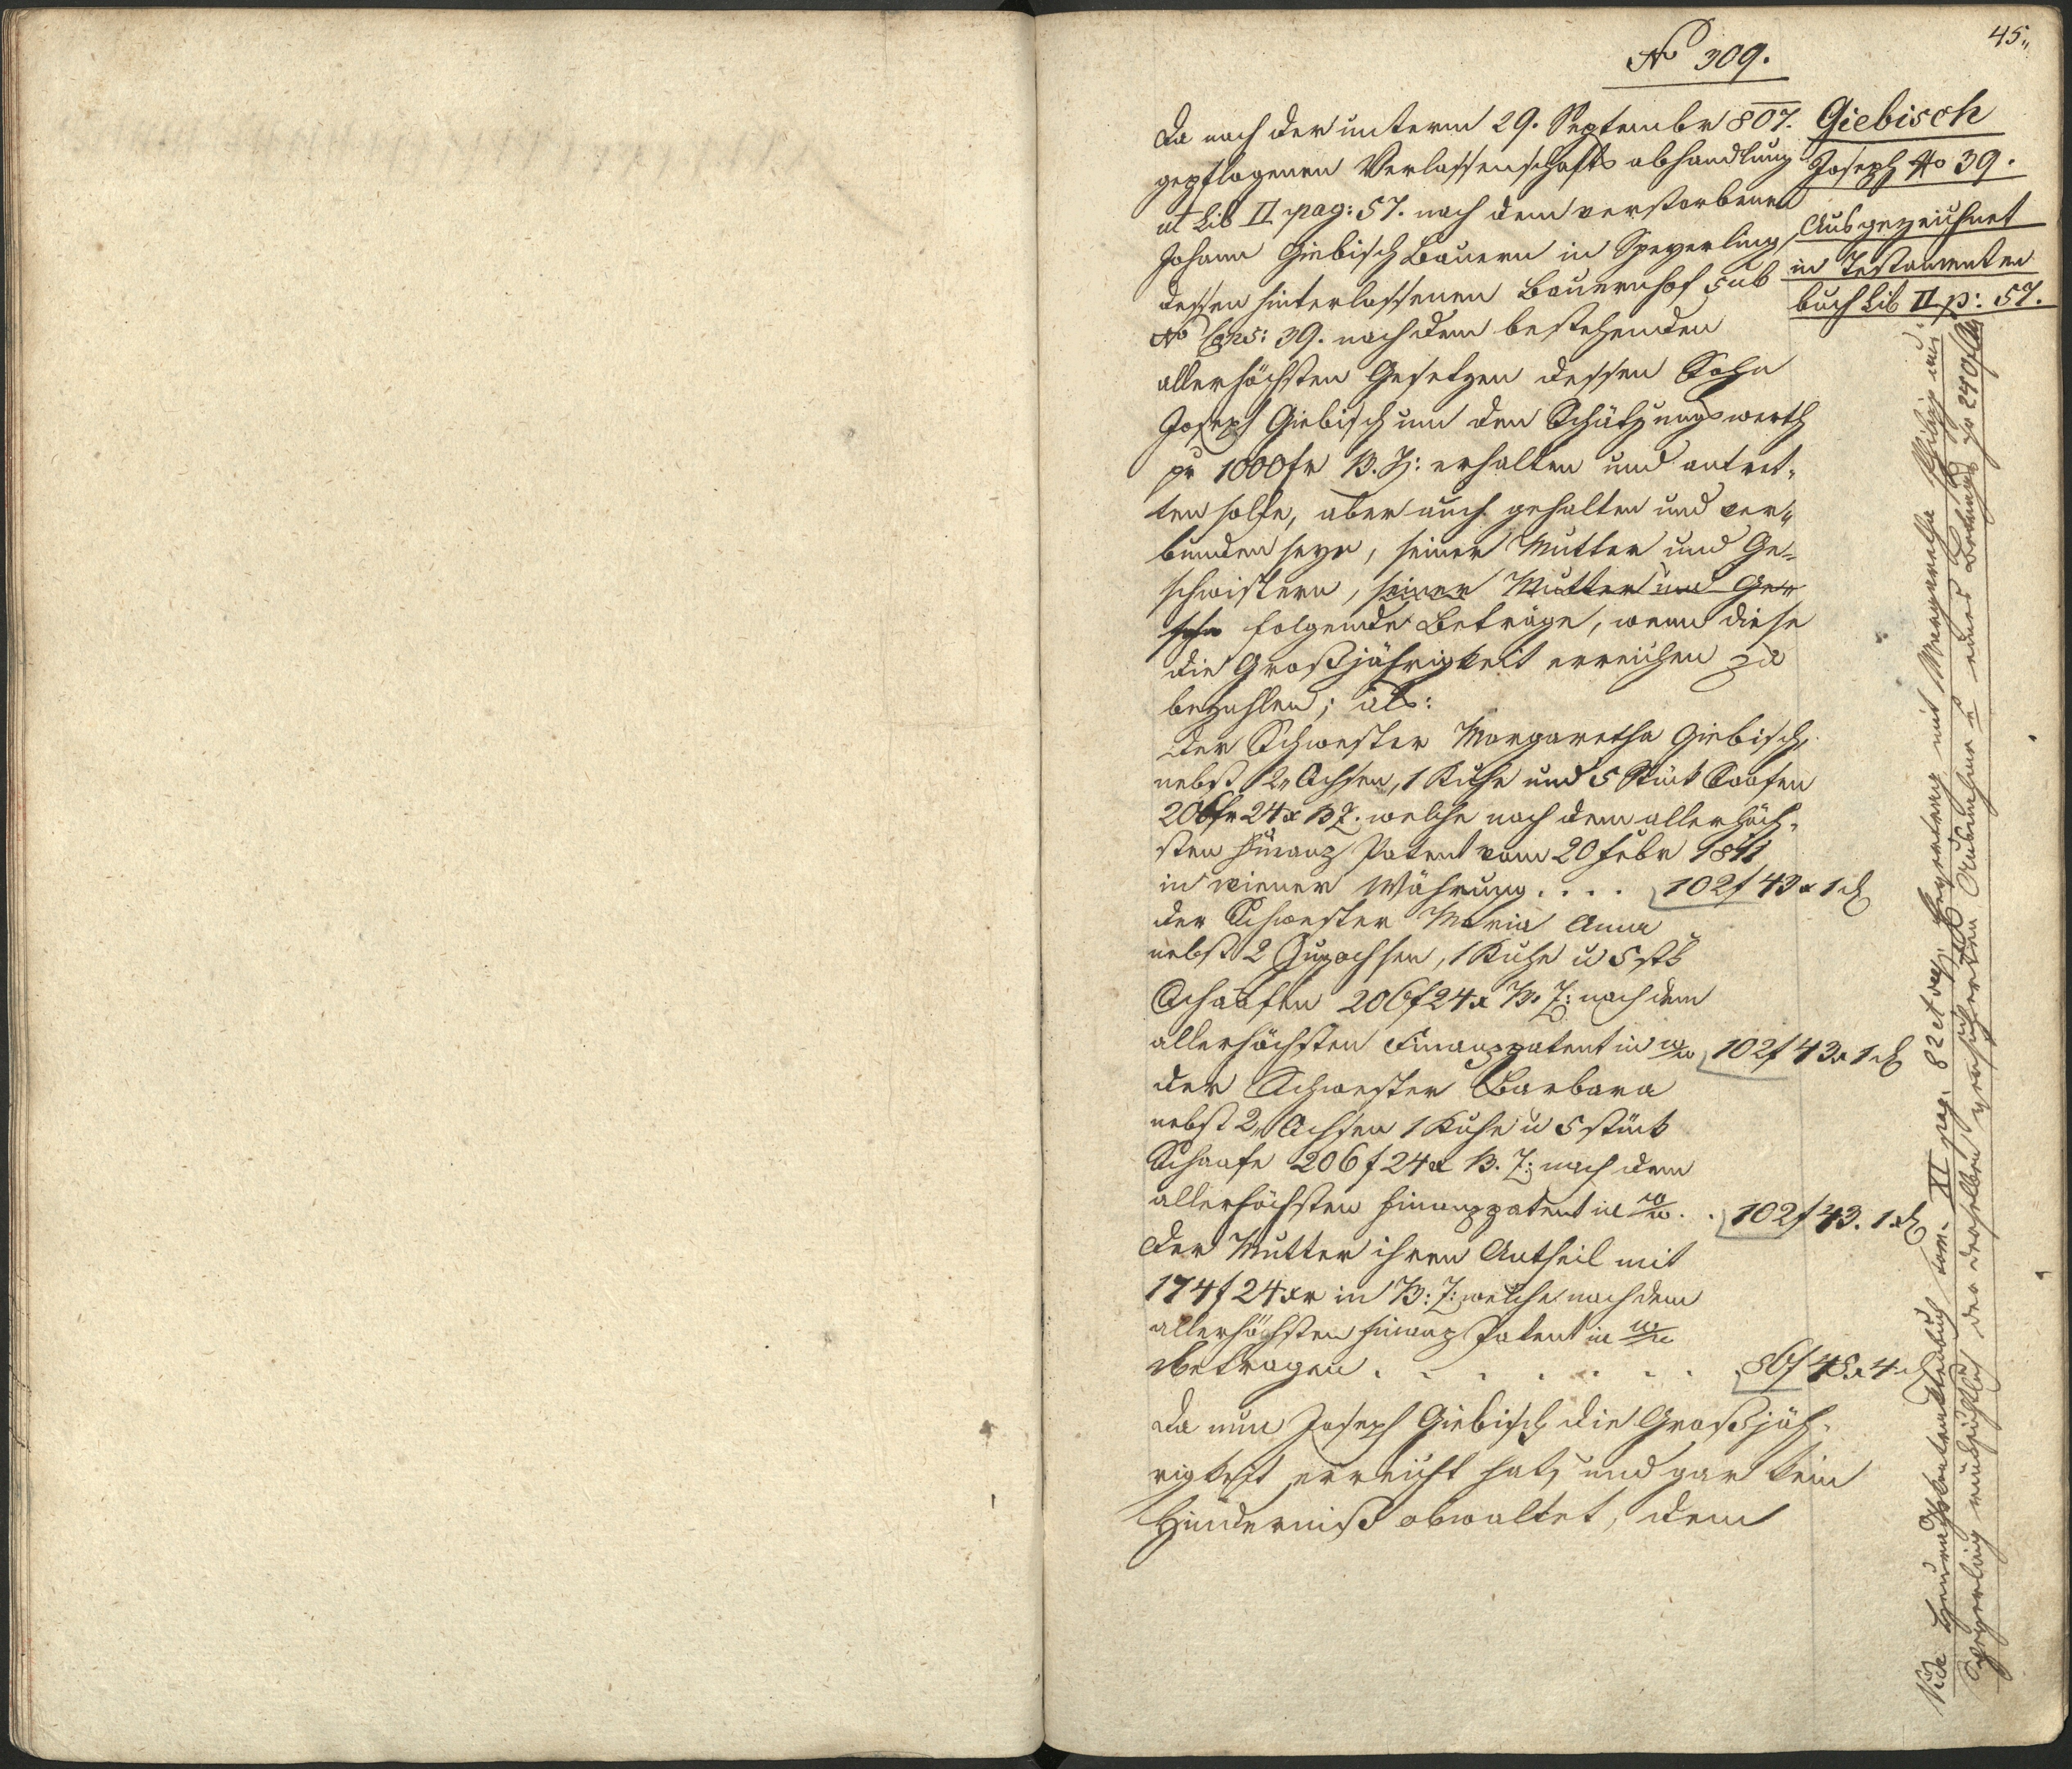 45„
No 309.
Giebisch
Joseph No 39.
Ausgezeichnet
in Testamenten
buch Lib II p: 57.
Da nach der unterm 29. Septembr 807.
gepflogenen Verlassenschafts abhandlung
ut Lib II pag: 57. nach dem verstorbenen
Johann Giebisch Bauern in Speyerling,
dessen hinterlassenen Bauernhof sub
No Cons: 39. nach den bestehenden
allerhöchsten Gesetzen dessen Sohn
Joseph Giebisch um den Schätzungswerth
pr 1000 fr B. Z: erhalten und antret„
ten solle, aber auch gehalten und ver„
bunden seyn, seiner Mutter und Ge„
schwistern, seiner Mutter und Ge„
sch folgende Beträge, wenn diese
die Großjährigkeit erreichen zu
bezahlen; als:
Der Schwester Margaretha Giebisch,
nebst 2 Ochsen, 1 Kuhe und 5 Stück Schafen
206 fr 24 x B Z. welche nach dem allerhöch„
sten Finanz Patent vom 20 Febr 1811
in wiener Währung . . . . 102 f 43 x 1 d
der Schwester Maria Anna
nebst 2 Zugochsen, 1 Kuhe u 5 stk
Schaafen 206 f 24 x B. Z: nach dem
allerhöchsten Finanzpatent in W/W 102 f 43 x 1 d
der Schwester Barbara
nebst 2 Ochsen 1 Kuhe u 5 stück
Schaafe 206 f 24 x B. Z: nach dem
allerhöchsten Finanzpatent in W/W . . 102 f 43. 1 d
Der Mutter ihren Antheil mit
174 f 24 xr in B: Z: welche nach dem
allerhöchsten Finanz Patent in W/W
betragen . . . . . . . 86 f 48 x 4 d
Da nun Joseph Giebisch die Großjäh„
rigkeit erreicht hat, und gar kein
Hinderniß obwaltet, dem
Vide Heurathskontraktenbuch tom. XI pag. 82 et seq. mit Margaretha
Speyerling rücksichtlich der derselben versicherten eines Betrags pr 240 f